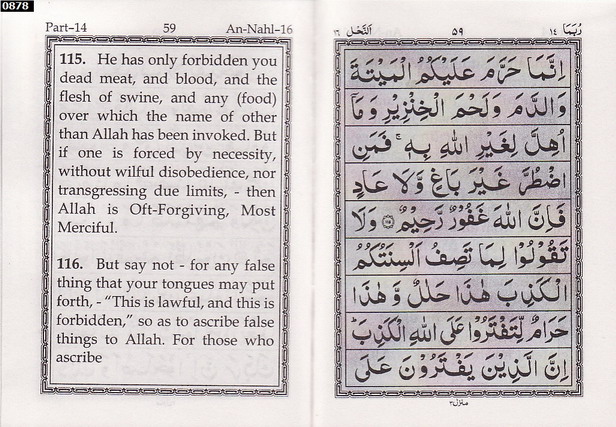 0878
Part–14 59 An-Nahl-16
115. He has only forbidden you
dead meat, and blood, and the
flesh of swine, and any (food)
over which the name of other
than Allah has been invoked. But
if one is forced by necessity,
without wilful disobedience, nor
transgressing due limits, - then
Allah is Oft-Forgiving, Most
Merciful.
116. But say not - for any false
thing that your tongues may put
forth, - “This is lawful, and this is
forbidden,” so as to ascribe false
things to Allah. For those who
ascribe
رُبَمَا ١٤ ٥٩ اَلنَّحْل ١٦
اِنَّمَا حَرَّمَ عَلَيْكُمُ الْمَيْتَةَ
وَالدَّمَ وَلَحْمَ الْخِنْزِيْرِ وَمَآ
اُهِلَّ لِغَيْرِ اللّٰهِ بِهٖ ۚ فَمَنِ
اضْطُرَّ غَيْرَ بَاغٍ وَّلَا عَادٍ
فَاِنَّ اللّٰهَ غَفُوْرٌ رَّحِيْمٌ ۝١١٥ وَلَا
تَقُوْلُوْا لِمَا تَصِفُ اَلْسِنَتُكُمُ
الْكَذِبَ هٰذَا حَلٰلٌ وَّ هٰذَا
حَرَامٌ لِّتَفْتَرُوْا عَلَى اللّٰهِ الْكَذِبَ ؕ
اِنَّ الَّذِيْنَ يَفْتَرُوْنَ عَلَى
منزل ٣